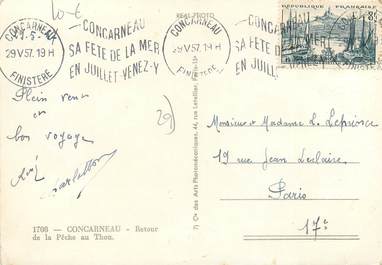 10-€
REAL-PHOTO
CONCARNEAU
29 V 57. 19 H
FINISTERE
CONCARNEAU
SA FETE DE LA MER
EN JUILLET-VENEZ-Y
CONCARNEAU
29 V 57. 19 H
FINISTERE
CONCARNEAU
SA FETE DE LA MER
EN JUILLET
REPUBLIQUE FRANÇAISE
Plein vent
en
bon voyage
29
Monsieur et Madame L. Leprince
19 rue Jean Leclaire
Paris
17e
1708 — CONCARNEAU - Retour
de la Pêche au Thon.
Cie des Arts Photomécaniques, 44, rue Letellier, Paris-15e